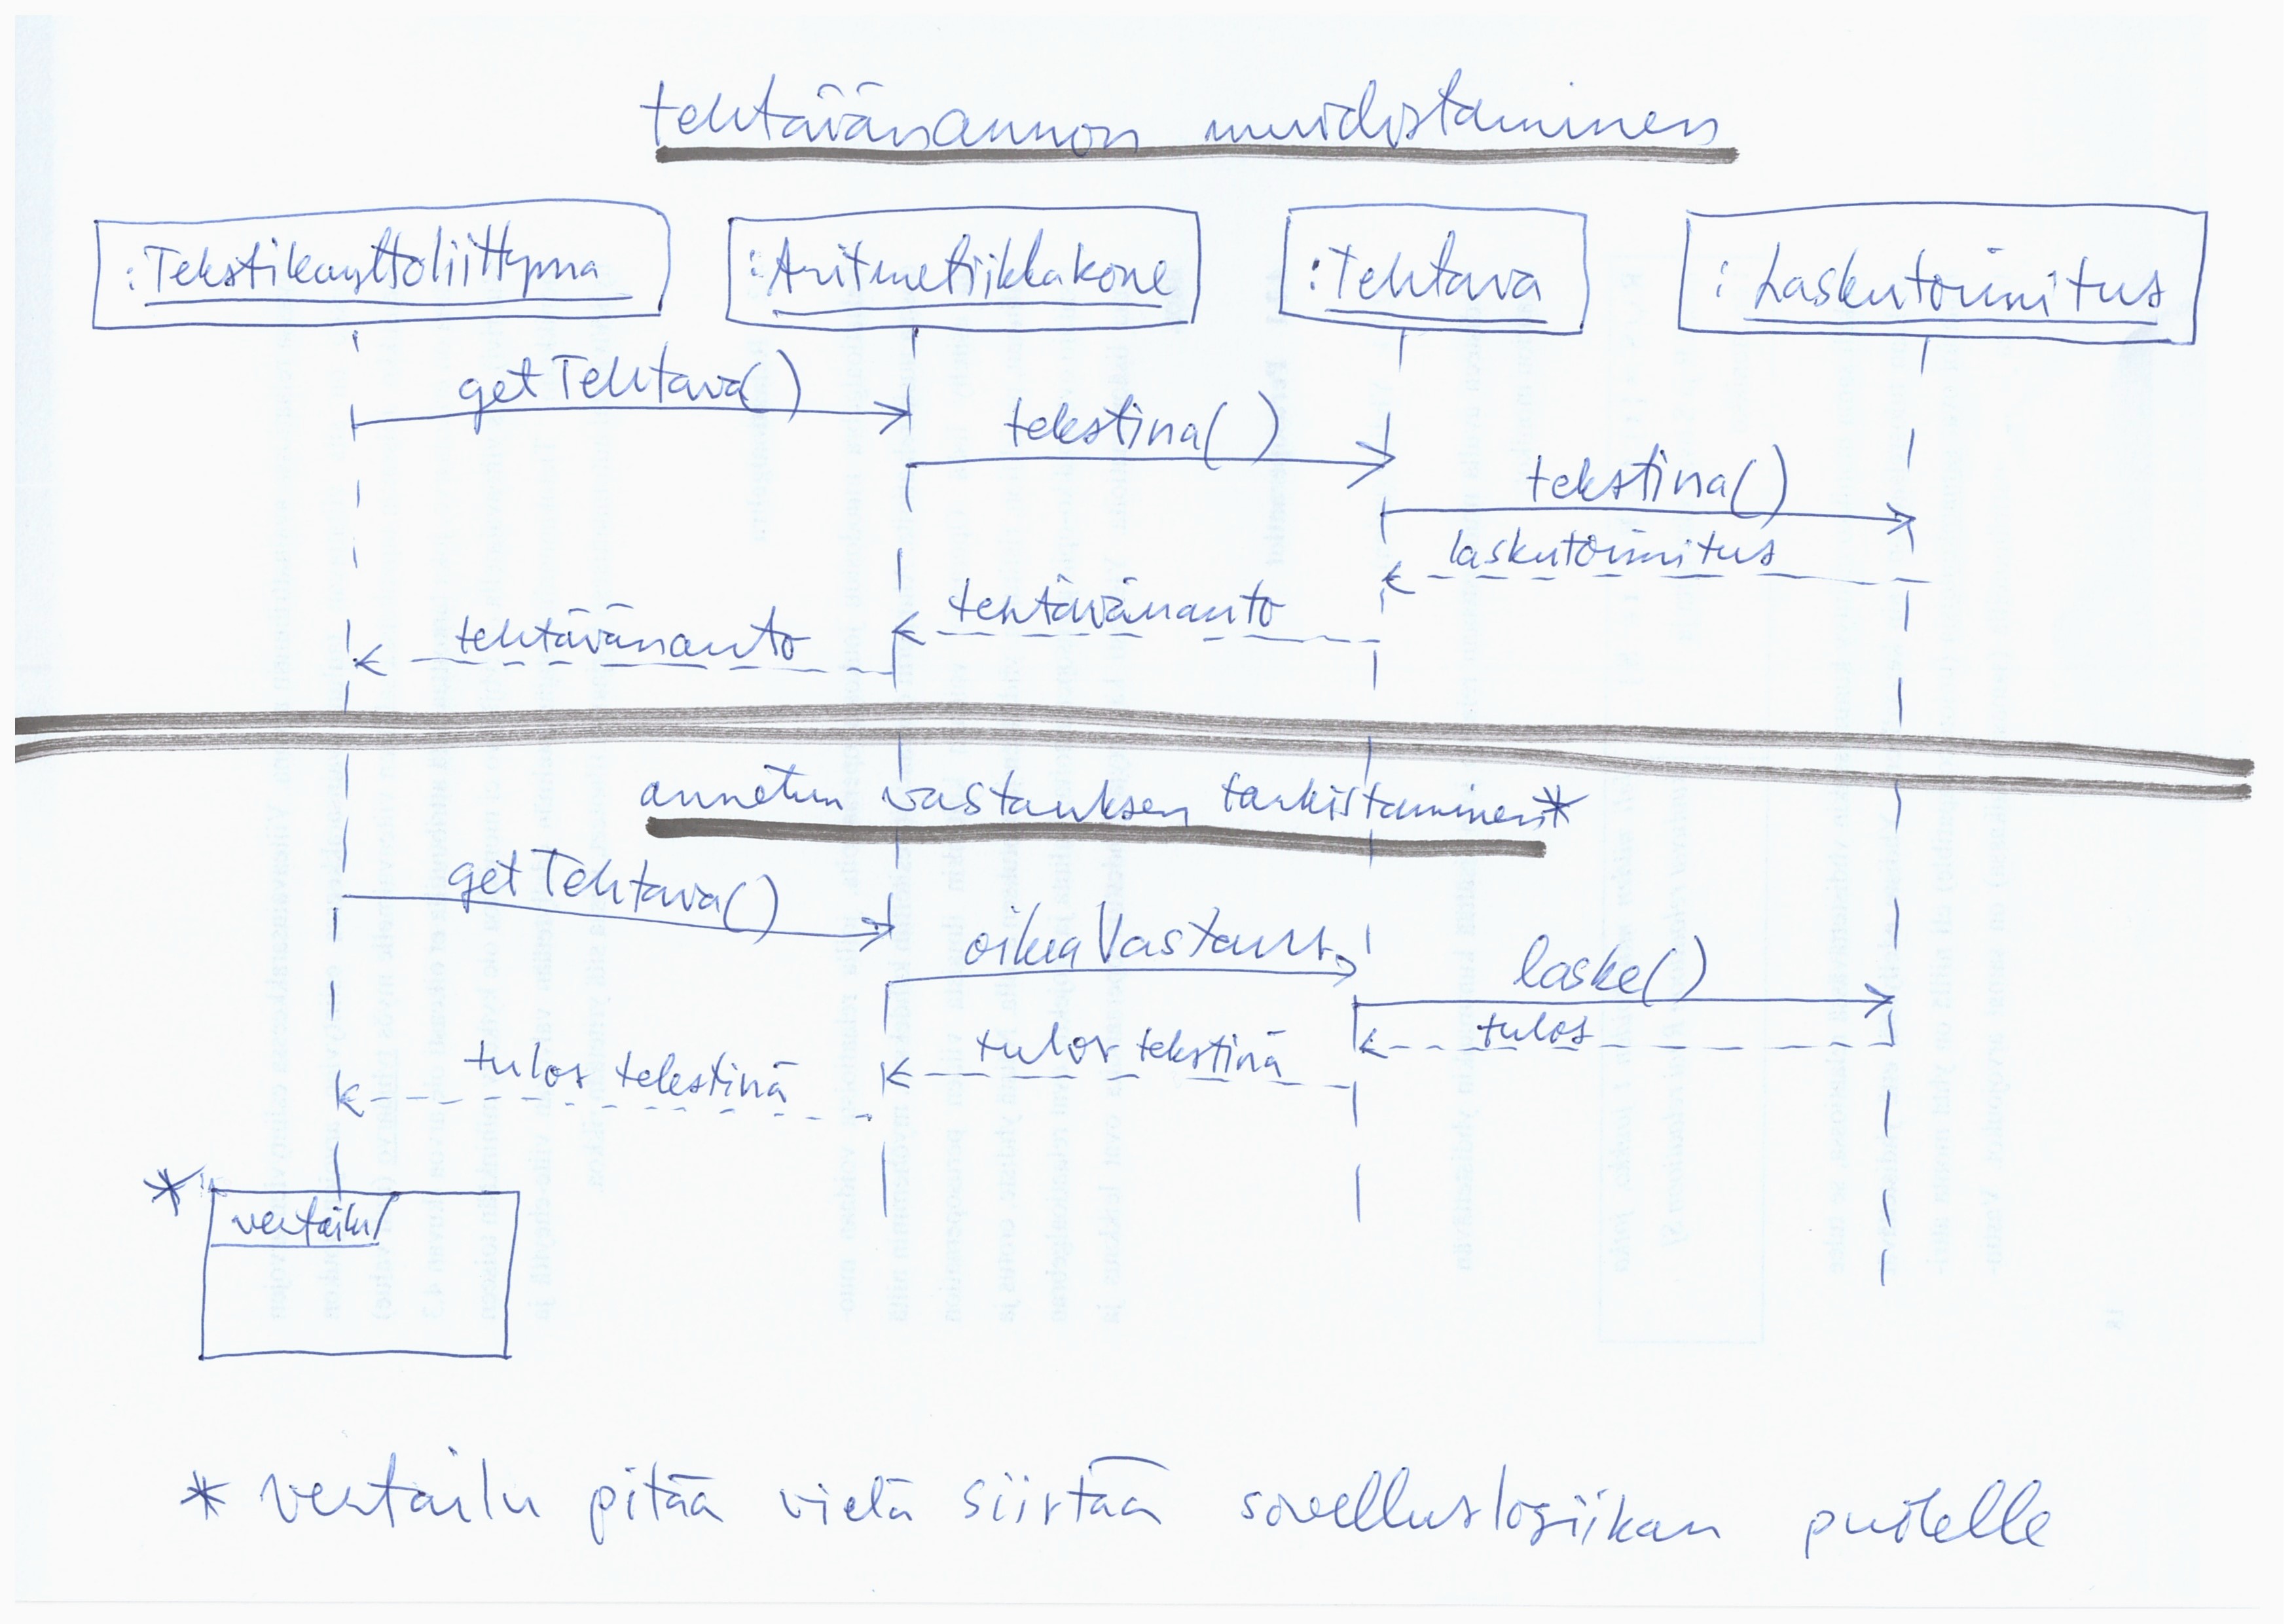 tehtävänannon muodostaminen
:Tekstikayttoliittyma :Aritmetiikkakone :Tehtava :Laskutoimitus
getTehtava()
tekstina()
tekstina()
laskutoimitus
tehtävänanto
tehtävänanto
annetun vastauksen tarkistaminen*
getTehtava()
oikeaVastaus
laske()
tulos
tulos tekstinä
tulos tekstinä
*
vertailu
* vertailu pitää vielä siirtää sovelluslogiikan puolelle